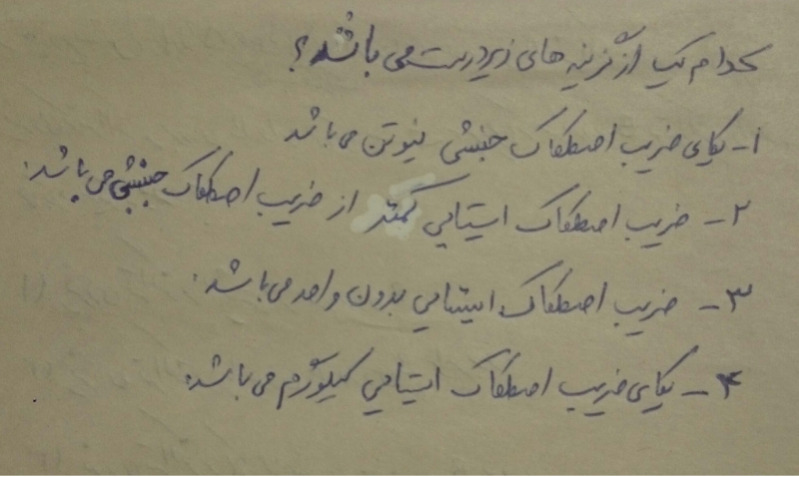 کدام یک از گزینه های زیر درست می باشد؟
۱- یکای ضریب اصطکاک جنبشی نیوتن می باشد
۲- ضریب اصطکاک ایستایی کمتر از ضریب اصطکاک جنبشی می باشد.
۳- ضریب اصطکاک ایستایی بدون واحد می باشد.
۴- یکای ضریب اصطکاک ایستایی کیلوگرم می باشد.